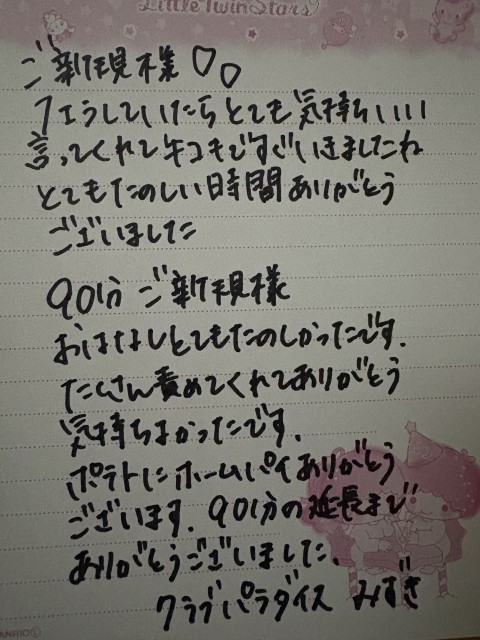 LittleTwinStars
ご新規様♡♡
フェラしていたらとても気持ちいい
言ってくれて手コキですぐいきましたね
とてもたのしい時間ありがとう
ございました
90分ご新規様
おはなしとてもたのしかったです.
たくさん責めてくれてありがとう
気持ちよかったです.
ポテトにホームパイありがとう
ございます.90分の延長まで
ありがとうございました.
クラブパラダイス みずき